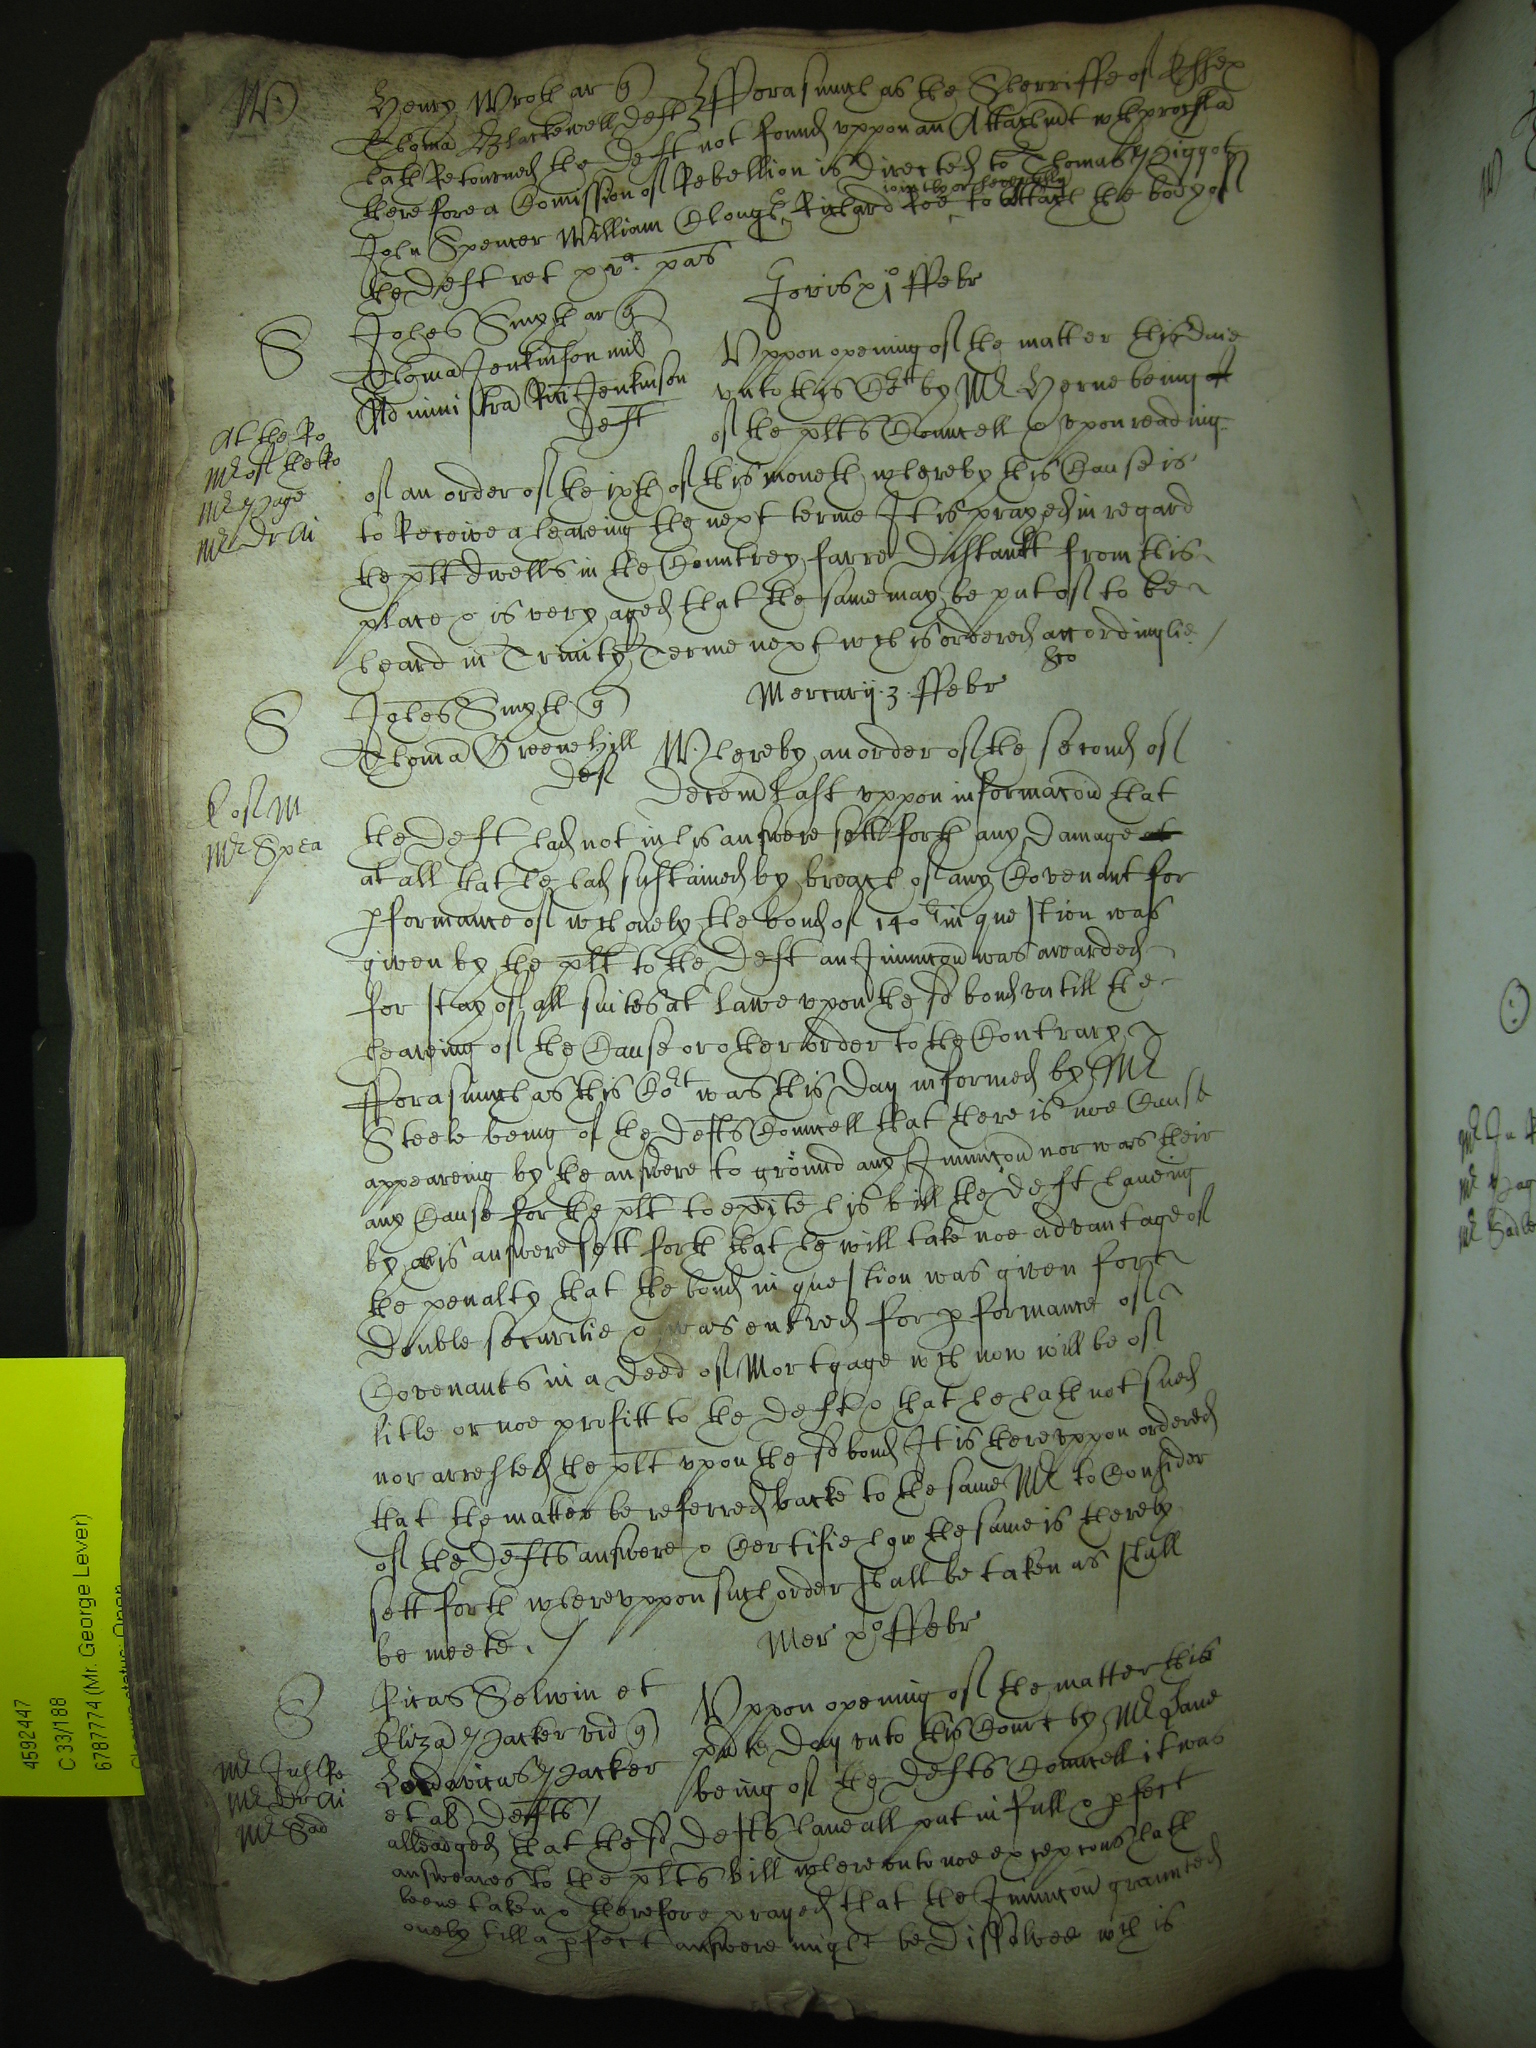 W
Henry Wroth ar q
Thoma Blackewell deft
Fforasmuch as the Sherriffe of Essex
hath Retourned the deft not found uppon an Attachmt wth procla
therefore a Comission of Rebellion is directed to Thomas Piggot
John Spencer William Clough Richard Roe to attach the body of
iointly or severally
the deft ret xva pas
Jovis xio ffebr
S
Johes Smyth ar q
Thoma Jenkinson mil
Administra Rici Jenkinson
deft
Uppon opening of the matter this daie
unto this Cort by Mr Herne being
of the plts Councell & upon reading
At the Ro
Mr of the Ro
Mr Page
of an order of the ixth of this moneth whereby this Cause is
to Receive a heareing the next terme It is prayed in regard
the plt dwells in the Countrey farre distantt from this
place & is very aged that the same may be put of to be
heard in Trinity Terme next wch is ordered accordinglie
Mercurij 3 ffebr
S
Johes Smyth q
Thoma Greenehill
def
Whereby an order of the second of
Decem last uppon informacon that
Mr Spea
the deft had not in his answere sett forth any damage at
at all that he had susteined by breach of any Covenant for
pformance of wch onely the bond of 140l in question was
given by the plt to the deft an Iniunccon was awarded
for stay of all suites at lawe upon the sd bond untill the
heareing of the Cause or other order to the Contrary
Fforasmuch as this Cort was this day informed by Mr
Steele being of the defts Councell that there is noe Cause
appeareing by the answere to ground any Iniunccon nor was their
any Cause for the plt to exhite his bill the deft haveing
by his answere sett forth that he will take noe advantage of
the penalty that the bond in question was given for
double securitie & was entred for pformance of
Covenants in a deed of Mortgage wch now will be of
litle or noe profitt to the deft & that he hath not sued
nor arrested the plt upon the sd bond It is thereuppon ordered
that the matter be referred backe to the same Mr to Consider
of the defts answere & Certifie how the same is thereby
sett forth whereuppon such order shall be taken as shall
be meete.
Mer xo ffebr
S
Ricus Selwin et
Eliza Packer vid q
Lodovicus Packer
et al defts
Uppon opening of the matter this
pnte day unto this Court by Mr Lane
being of the defts Councell it was
Mr Sad
alleadged that the sd defts have all put in full & pfect
answeares to the plts bill whereunto noe excepcons hath
beene taken & therefore prayed that the Iniunccon graunted
onely till a pfect answere might be dissolved wch is
4592447
C 33/188
6787774 (Mr. George Lever)